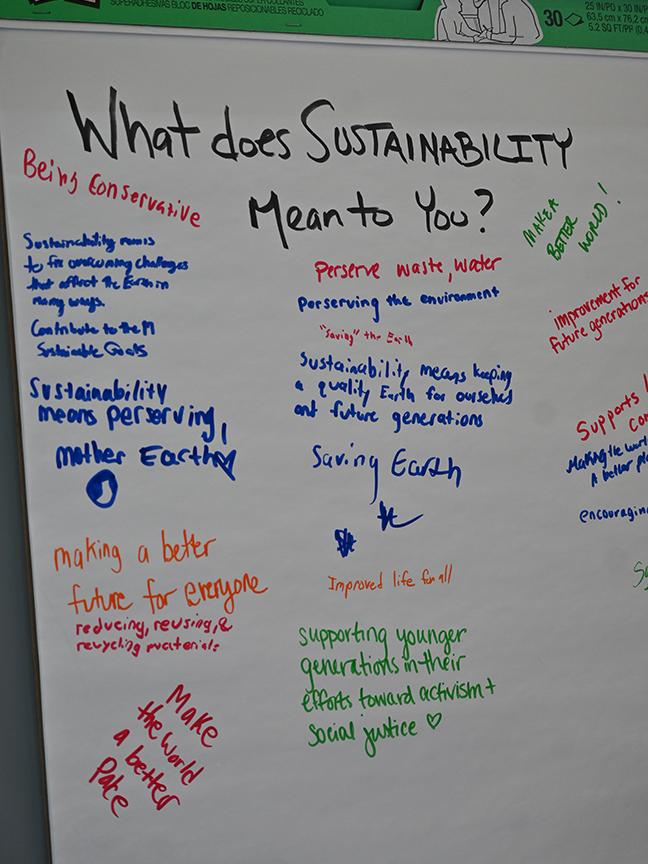 SUPERADHESIVAS BLOC DE HOJAS REPOSICIONABLES RECICLADO
30
25 IN/PO x 30 IN/P
63.5 cm x 76.2
5.2 SQ FT/PP (0,4
What does SUSTAINABILITY
Mean to You?
Being Conservative
Sustainability means
to fix overcoming challenges
that affect the Earth in
many ways.
Contribute to the
Sustainable Goals
Sustainability
means perserving,
mother Earth
making a better
future for everyone
reducing, reusing, &
recycling materials
Make
the world
a better
Pace
Perserve waste, water
Perserving the environment
"Saving" the Earth
Sustainability means keeping
a quality Earth for ourselves
and future generations
Saving Earth
Improved life for all
supporting younger
generations in their
efforts toward activism +
social justice ♡
MAKE A
BETTER
WORLD!
improvement for
future generations
Supports
Making the worl
A better pla
encouragin